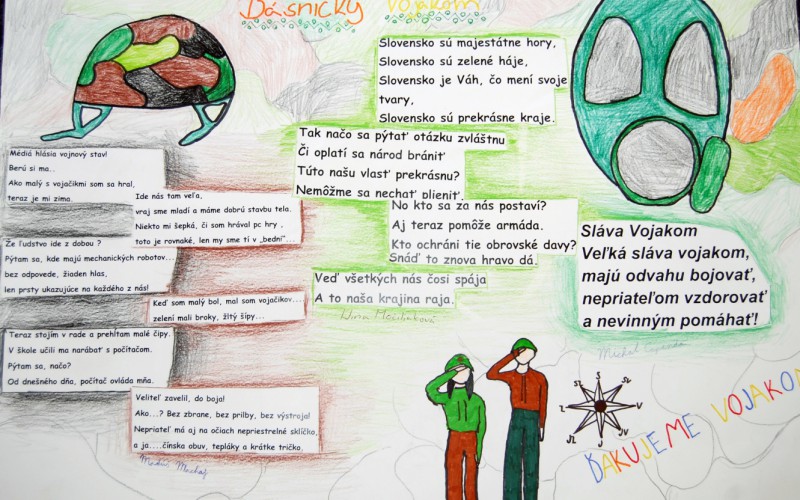 Básničky vojakom
Médiá hlásia vojnový stav!
Berú si ma..
Ako malý s vojačikmi som sa hral,
teraz je mi zima.
Ide nás tam veľa,
vraj sme mladí a máme dobrú stavbu tela.
Niekto mi šepká, či som hrával pc hry ,
toto je rovnaké, len my sme tí v „bedni"...
Že ľudstvo ide z dobou ?
Pýtam sa, kde majú mechanických robotov...
bez odpovede, žiaden hlas,
len prsty ukazujúce na každého z nás!
Keď som malý bol, mal som vojačikov....
zelení mali broky, žltý šípy...
Teraz stojím v rade a prehĺtam malé čipy.
V škole učili ma narábať s počítačom.
Pýtam sa, načo?
Od dnešného dňa, počítač ovláda mňa.
Veliteľ zavelil, do boja!
Ako...? Bez zbrane, bez prilby, bez výstroja!
Nepriateľ má aj na očiach nepriestrelné sklíčko,
a ja....čínska obuv, tepláky a krátke tričko.
Slovensko sú majestátne hory,
Slovensko sú zelené háje,
Slovensko je Váh, čo mení svoje
tvary,
Slovensko sú prekrásne kraje.
Tak načo sa pýtať otázku zvláštnu
Či oplatí sa národ brániť
Túto našu vlasť prekrásnu?
Nemôžme sa nechať plieniť.
No kto sa za nás postaví?
Aj teraz pomôže armáda.
Kto ochráni tie obrovské davy?
Snáď to znova hravo dá.
Veď všetkých nás čosi spája
A to naša krajina raja.
Sláva Vojakom
Veľká sláva vojakom,
majú odvahu bojovať,
nepriateľom vzdorovať
a nevinným pomáhať!
Michal
S
SZ
SV
Z
V
JZ
JV
J
ĎAKUJEME VOJAKOM